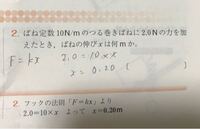 2. ばね定数10N/mのつる巻きばねに2.0Nの力を加
えたとき，ばねの伸びxは何mか。
F=kx 2.0=10×x
x=0.20 [
2. フックの法則「F=kx」より
2.0=10×x よって x=0.20m